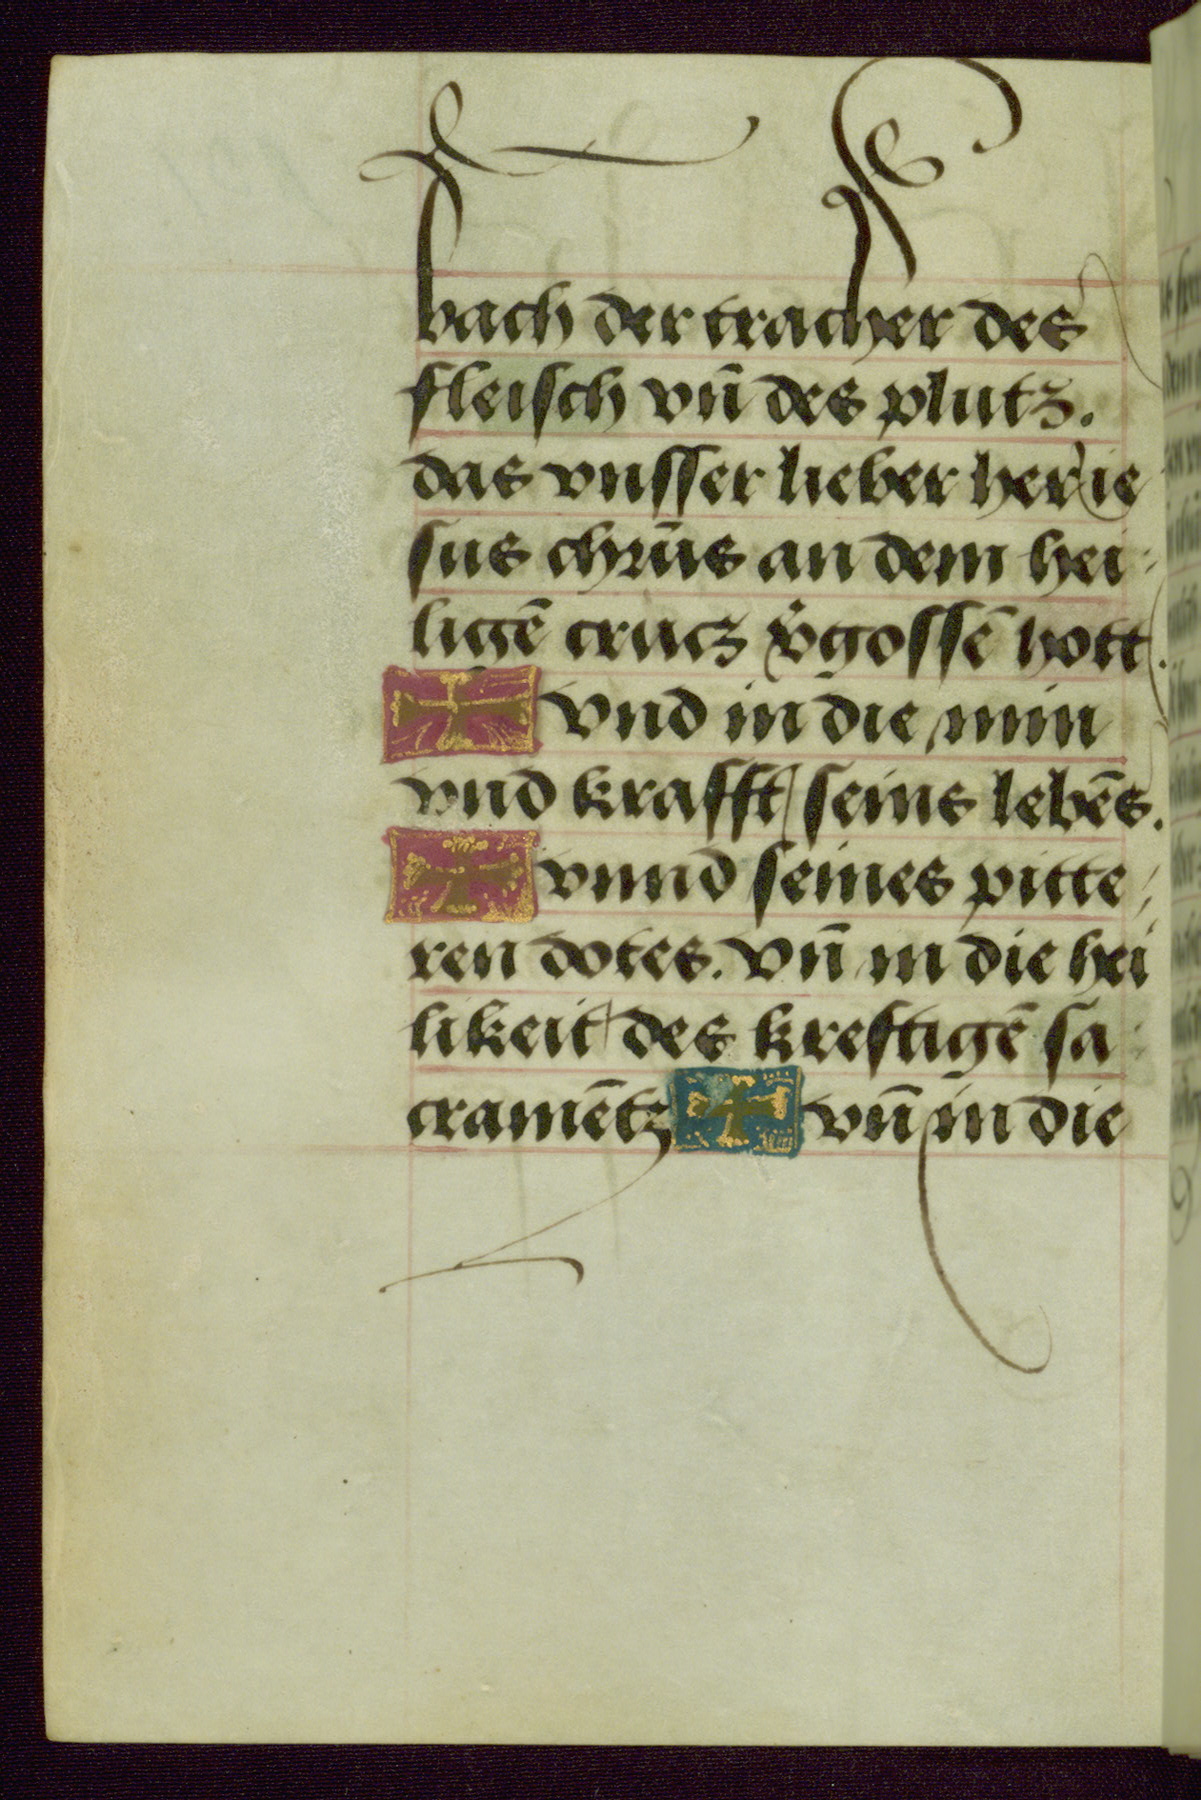 bach der tracher des
fleisch vn̄ des plutz.
das vnsser lieber her ie
sus chr̄us an dem hei-
ligē crucz v̄gossē hott.
vnd in die min
vnd krafft seins lebēs.
vnnd seines pitte-
ren dotes. vn̄ in die hei
likeit des kreftigē sa-
cramētz vn̄ in die